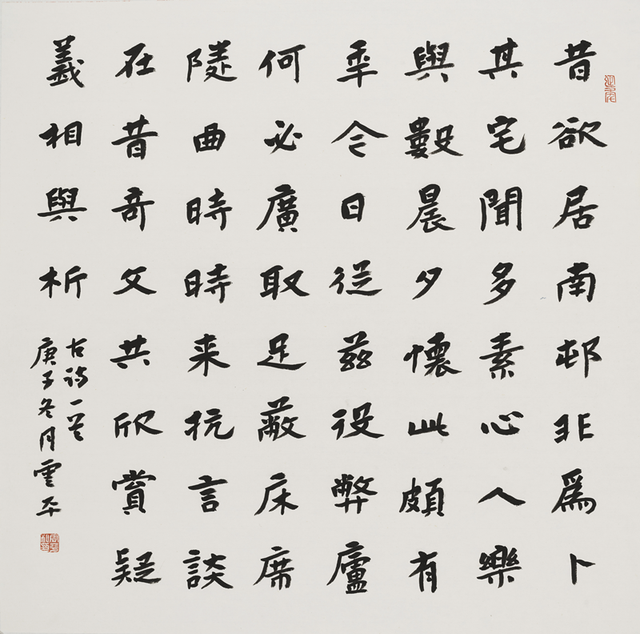 昔欲居南邨非爲卜
其宅聞多素心人樂
與數晨夕懷此頗有
年今日從茲役弊廬
何必廣取足蔽床席
隣曲時時来抗言談
在昔奇文共欣賞疑
義相與析
古诗一首
庚子冬月雲平